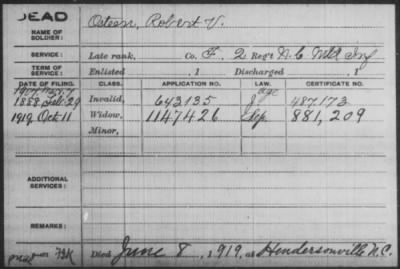 DEAD
NAME OF SOLDIER: Osteen, Robert V.
SERVICE: Late rank, Co. F, 2 Reg't N.C. Mtd Inf
TERM OF SERVICE: Enlisted , 1 Discharged , 1
DATE OF FILING. CLASS. APPLICATION NO. LAW. CERTIFICATE NO.
1907 age
1888 Feb. 29 Invalid, 643135 J 487173
1919 Oct 11 Widow, 1147426 Sep 881,209
Minor,
ADDITIONAL SERVICES:
REMARKS:
Died June 8, 1919, at Hendersonville N.C.